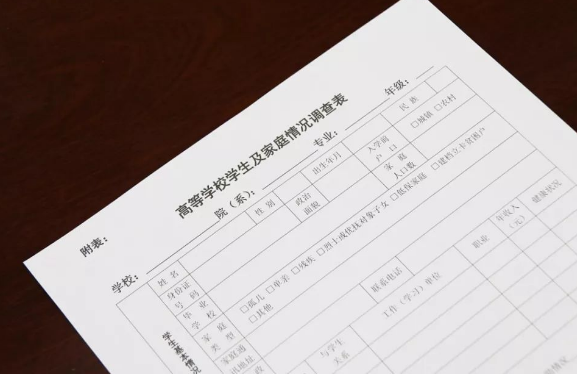 附表：
高等学校学生及家庭情况调查表
学校： 院（系）： 专业： 年级：
学生基本情况
姓名 性别 出生年月 民族
身份证号码 政治面貌 入学前户口 □城镇 □农村
毕业学校 家庭人口数
家庭类型 □孤儿 □单亲 □残疾 □烈士或优抚对象子女 □低保家庭 □建档立卡贫困户
□其他
联系电话
与学生关系 工作（学习）单位 职业 年收入（元） 健康状况